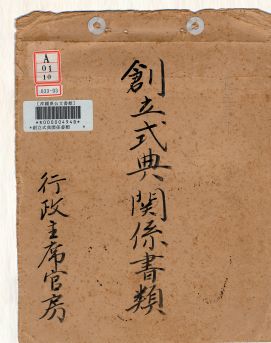 A
01
10
033-03
創立式典関係書類
行政主席官房